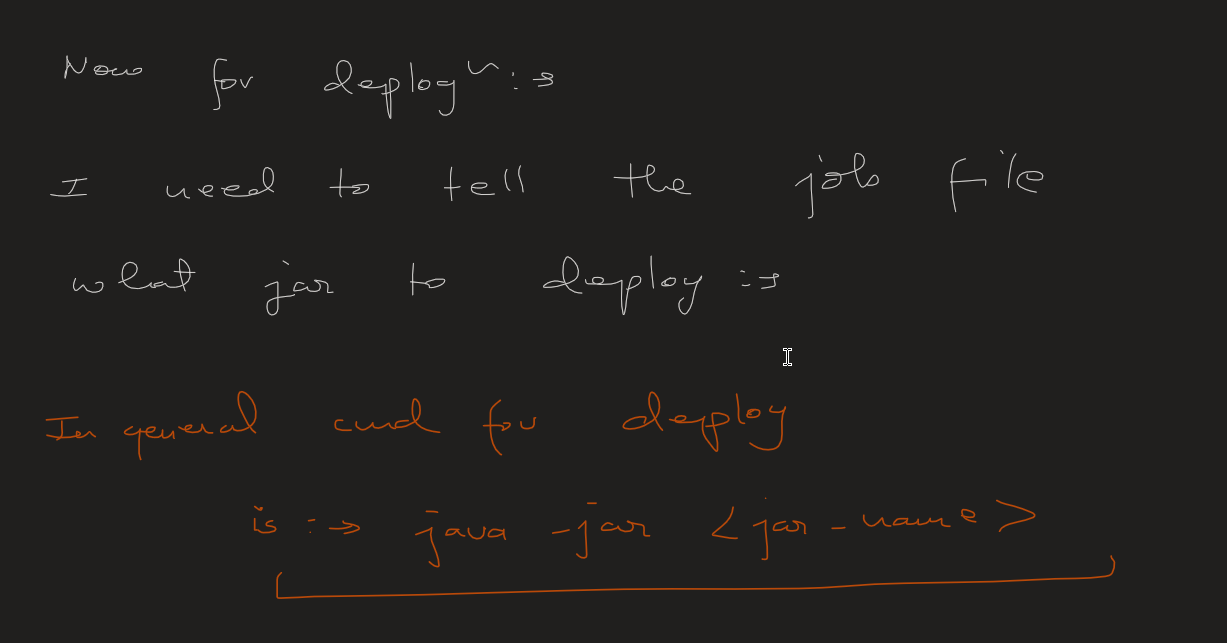 Now for deploy~ :→
I need to tell the job file
what jar to deploy :→
In general cmd for deploy
is :→ java -jar <jar-name>